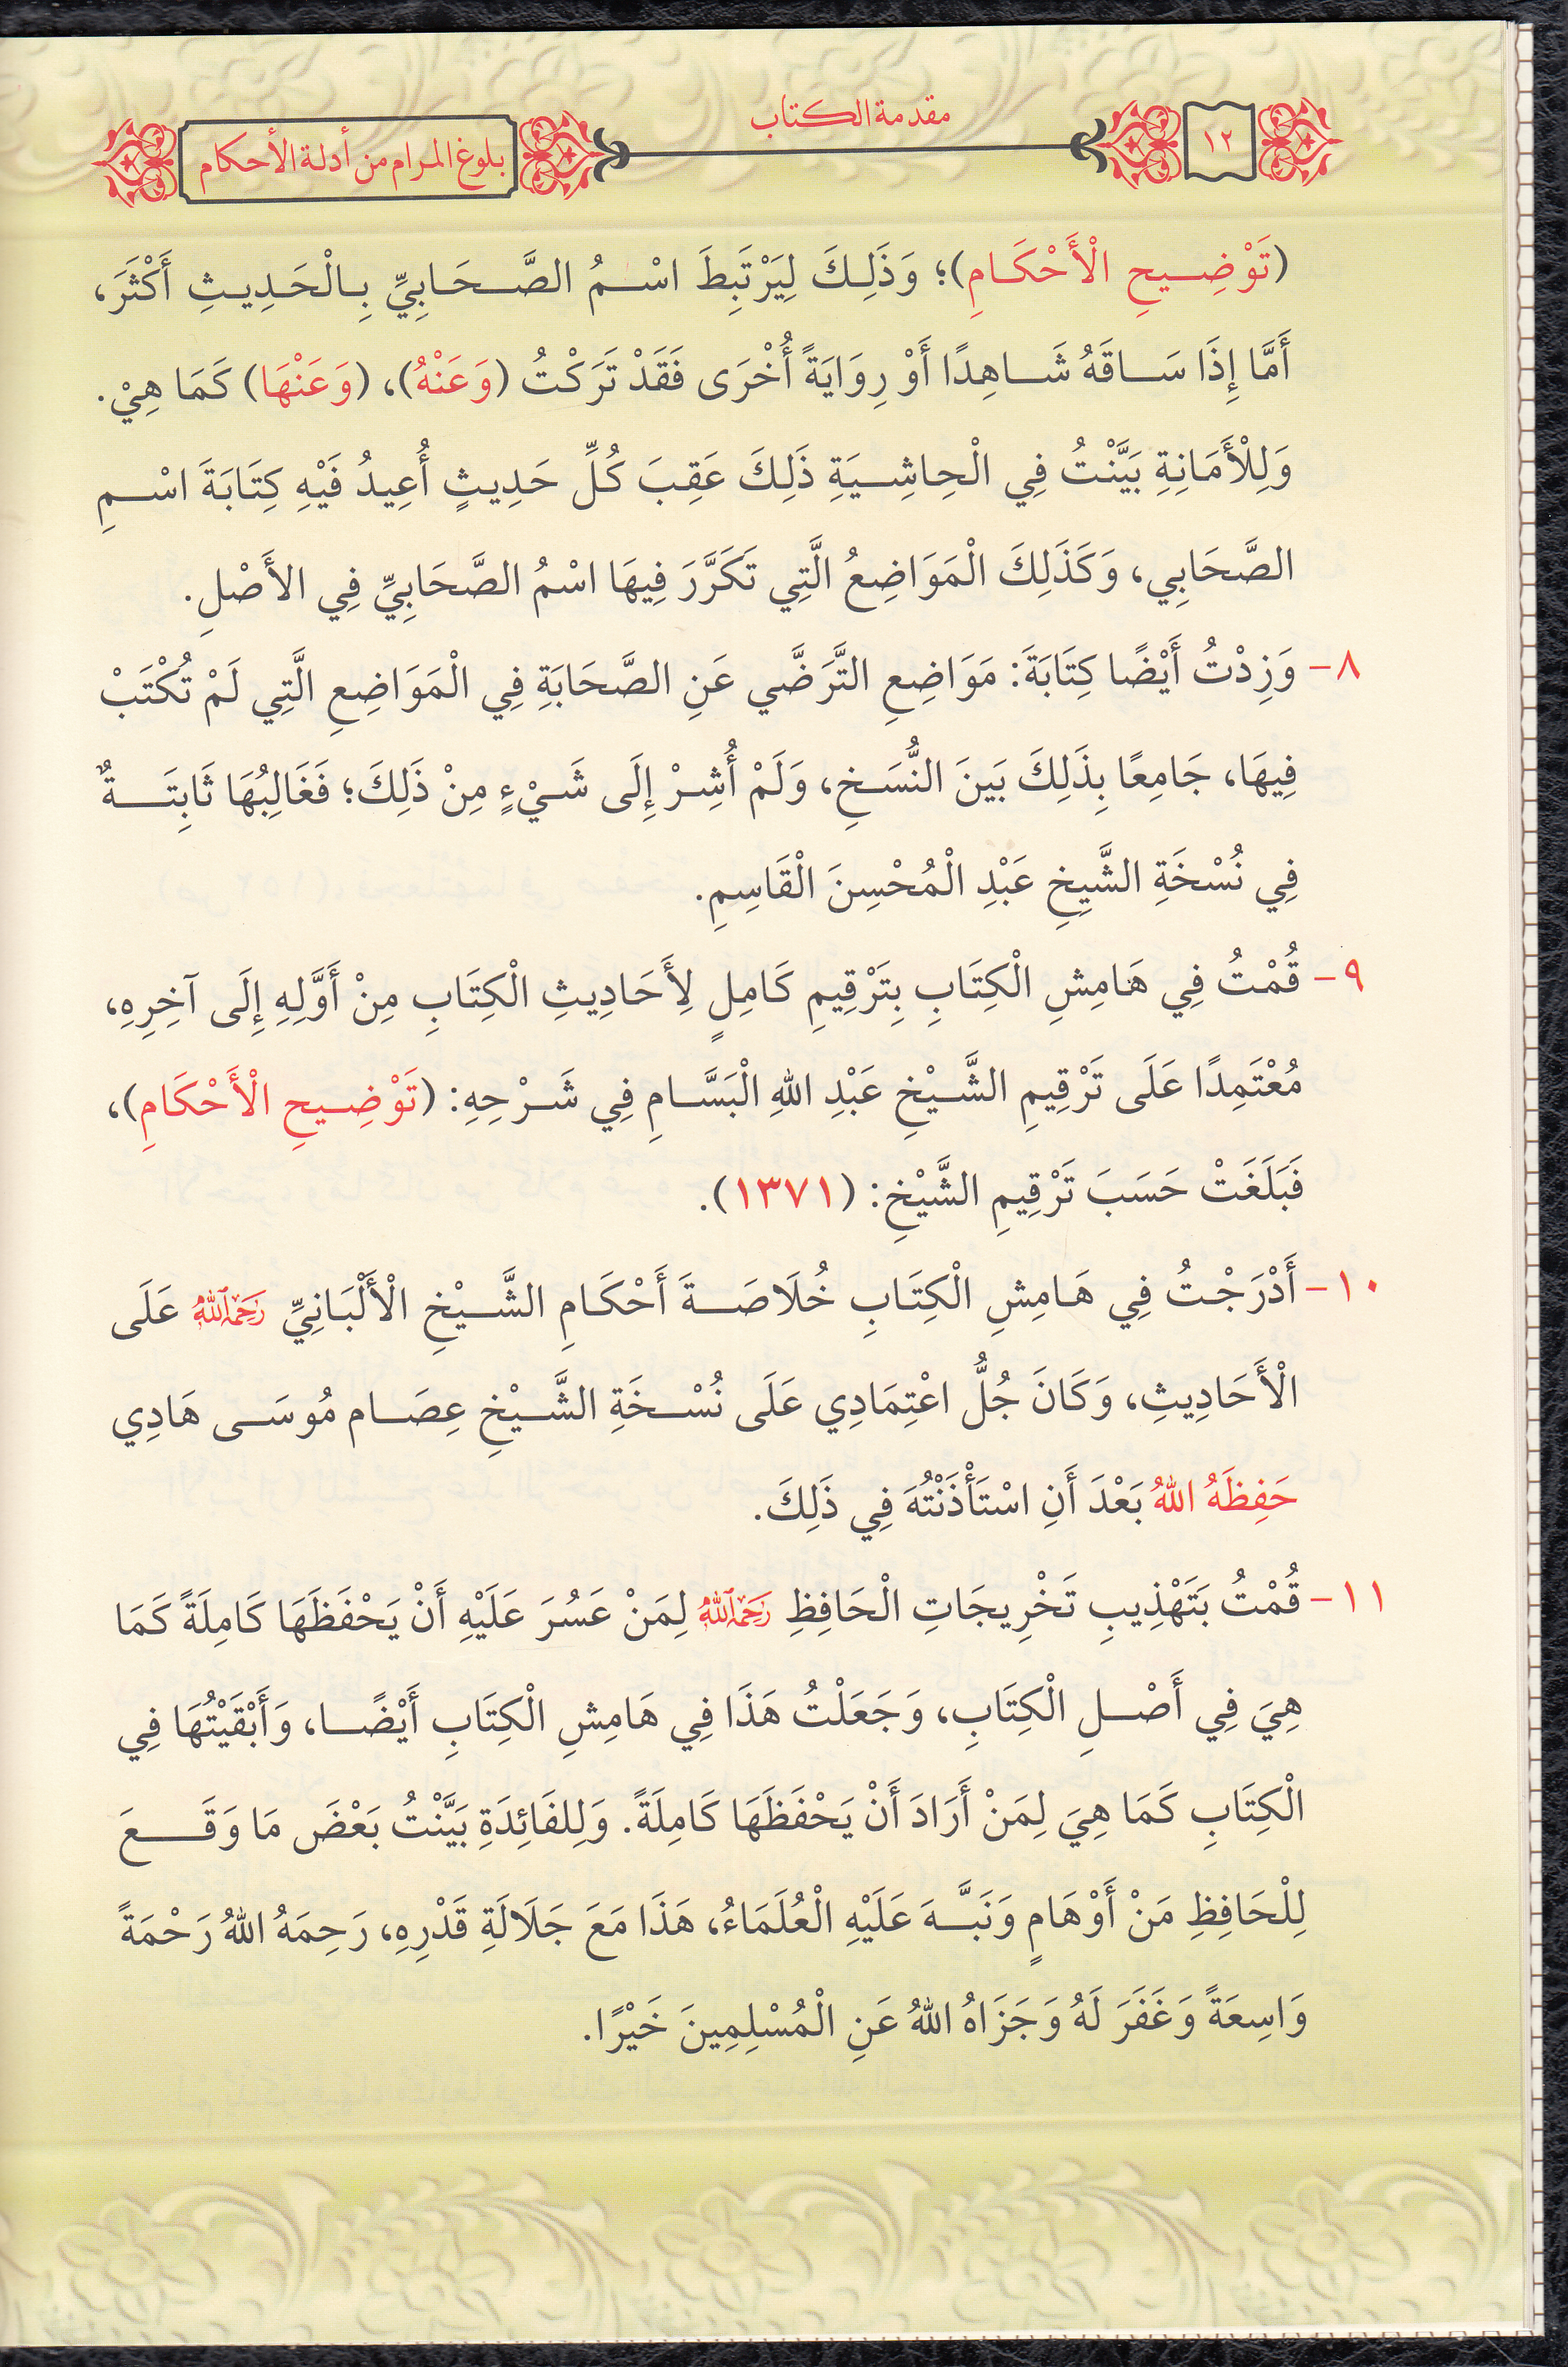 ١٢
مقدمة الكتاب
بلوغ المرام من أدلة الأحكام
(تَوْضِيحِ الْأَحْكَامِ)؛ وَذَلِكَ لِيَرْتَبِطَ اسْمُ الصَّحَابِيِّ بِالْحَدِيثِ أَكْثَرَ،
أَمَّا إِذَا سَاقَهُ شَاهِدًا أَوْ رِوَايَةً أُخْرَى فَقَدْ تَرَكْتُ (وَعَنْهُ)، (وَعَنْهَا) كَمَا هِيْ.
وَلِلْأَمَانِةِ بَيَّنْتُ فِي الْحِاشِيَةِ ذَلِكَ عَقِبَ كُلِّ حَدِيثٍ أُعِيدُ فَيْهِ كِتَابَةَ اسْمِ
الصَّحَابِي، وَكَذَلِكَ الْمَوَاضِعُ الَّتِي تَكَرَّرَ فِيهَا اسْمُ الصَّحَابِيِّ فِي الأَصْلِ.
٨- وَزِدْتُ أَيْضًا كِتَابَةَ: مَوَاضِعِ التَّرَضَّي عَنِ الصَّحَابَةِ فِي الْمَوَاضِعِ الَّتِي لَمْ تُكْتَبْ
فِيهَا، جَامِعًا بِذَلِكَ بَينَ النُّسَخِ، وَلَمْ أُشِرْ إِلَى شَيْءٍ مِنْ ذَلِكَ؛ فَغَالِبُهَا ثَابِتَةٌ
فِي نُسْخَةِ الشَّيِخِ عَبْدِ الْمُحْسِنَ الْقَاسِمِ.
٩- قُمْتُ فِي هَامِشِ الْكِتَابِ بِتَرْقِيمِ كَامِلٍ لِأَحَادِيثِ الْكِتَابِ مِنْ أَوَّلِهِ إِلَى آخِرِهِ،
مُعْتَمِدًا عَلَى تَرْقِيمِ الشَّيْخِ عَبْدِ اللهِ الْبَسَّامِ فِي شَرْحِهِ: (تَوْضِيحِ الْأَحْكَامِ)،
فَبَلَغَتْ حَسَبَ تَرْقِيمِ الشَّيْخِ: (١٣٧١).
١٠- أَدْرَجْتُ فِي هَامِشِ الْكِتَابِ خُلَاصَةَ أَحْكَامِ الشَّيْخِ الْأَلْبَانِيِّ رَحِمَهُ اللهُ عَلَى
الْأَحَادِيثِ، وَكَانَ جُلُّ اعْتِمَادِي عَلَى نُسْخَةِ الشَّيْخِ عِصَام مُوسَى هَادِي
حَفِظَهُ اللهُ بَعْدَ أَنِ اسْتَأْذَنْتُهَ فِي ذَلِكَ.
١١- قُمْتُ بَتَهْذِيبِ تَخْرِيجَاتِ الْحَافِظِ رَحِمَهُ اللهُ لِمَنْ عَسُرَ عَلَيْهِ أَنْ يَحْفَظَهَا كَامِلَةً كَمَا
هِيَ فِي أَصْلِ الْكِتَابِ، وَجَعَلْتُ هَذَا فِي هَامِشِ الْكِتَابِ أَيْضًا، وَأَبْقَيْتُهَا فِي
الْكِتَابِ كَمَا هِيَ لِمَنْ أَرَادَ أَنْ يَحْفَظَهَا كَامِلَةً. وَلِلفَائِدَةِ بَيَّنْتُ بَعْضَ مَا وَقَعَ
لِلْحَافِظِ مَنْ أَوْهَامٍ وَنَبَّهَ عَلَيْهِ الْعُلَمَاءُ، هَذَا مَعَ جَلَالَةِ قَدْرِهِ، رَحِمَهُ اللهُ رَحْمَةً
وَاسِعَةً وَغَفَرَ لَهُ وَجَزَاهُ اللهُ عَنِ الْمُسْلِمِينَ خَيْرًا.